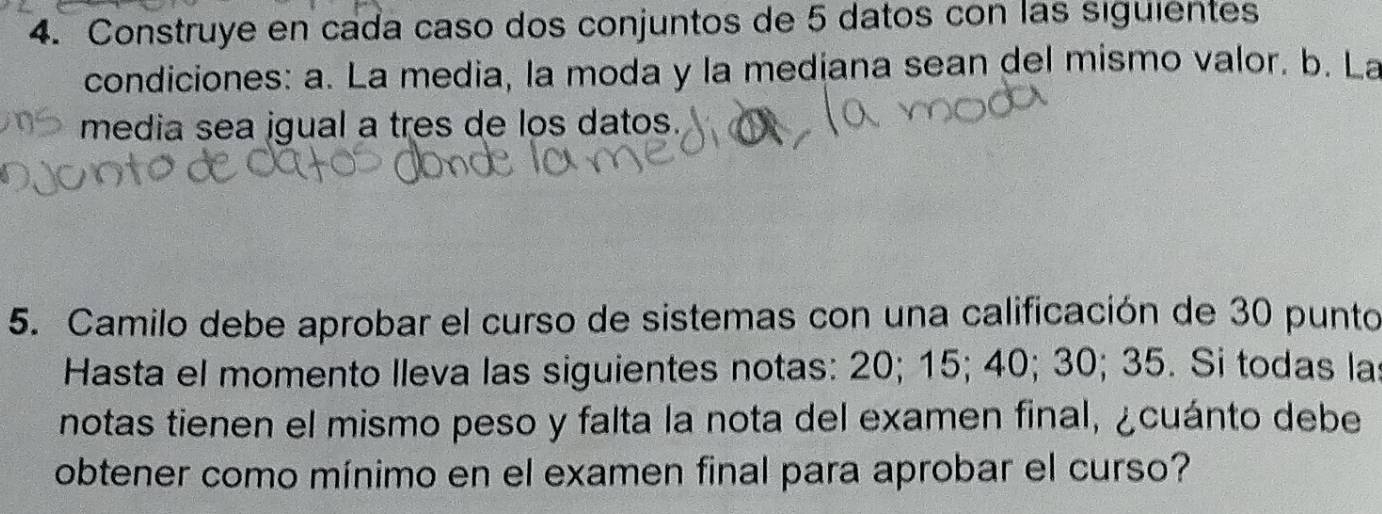 4. Construye en cada caso dos conjuntos de 5 datos con las siguientes
condiciones: a. La media, la moda y la mediana sean del mismo valor. b. La
media sea igual a tres de los datos.
la moda
de datos donde la media,
5. Camilo debe aprobar el curso de sistemas con una calificación de 30 punto
Hasta el momento lleva las siguientes notas: 20; 15; 40; 30; 35. Si todas las
notas tienen el mismo peso y falta la nota del examen final, ¿cuánto debe
obtener como mínimo en el examen final para aprobar el curso?